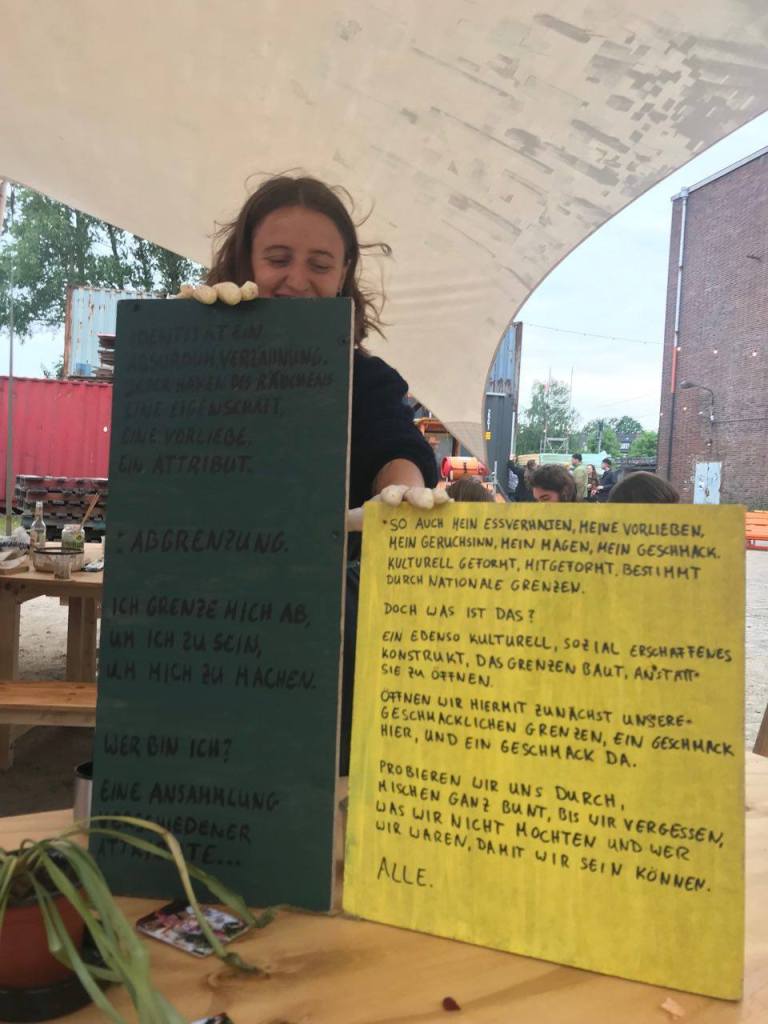 IDENTITÄT EIN
ABSURDUM VERZAHNUNG.
JEDER HAKEN DES RÄDCHENS
EINE EIGENSCHAFT,
EINE VORLIEBE,
EIN ATTRIBUT.
: ABGRENZUNG.
ICH GRENZE MICH AB,
UM ICH ZU SEIN,
UM MICH ZU MACHEN.
WER BIN ICH?
EINE ANSAMMLUNG
VERSCHIEDENER
ATTRIBUTE...
SO AUCH MEIN ESSVERHALTEN, MEINE VORLIEBEN,
MEIN GERUCHSINN, MEIN MAGEN, MEIN GESCHMACK.
KULTURELL GEFORMT, MITGEFORMT. BESTIMMT
DURCH NATIONALE GRENZEN.
DOCH WAS IST DAS?
EIN EBENSO KULTURELL, SOZIAL ERSCHAFFENES
KONSTRUKT, DAS GRENZEN BAUT, ANSTATT
SIE ZU ÖFFNEN.
ÖFFNEN WIR HIERMIT ZUNÄCHST UNSERE
GESCHMACKLICHEN GRENZEN, EIN GESCHMACK
HIER, UND EIN GESCHMACK DA.
PROBIEREN WIR UNS DURCH,
MISCHEN GANZ BUNT, BIS WIR VERGESSEN,
WAS WIR NICHT MOCHTEN UND WER
WIR WAREN, DAMIT WIR SEIN KÖNNEN.
ALLE.